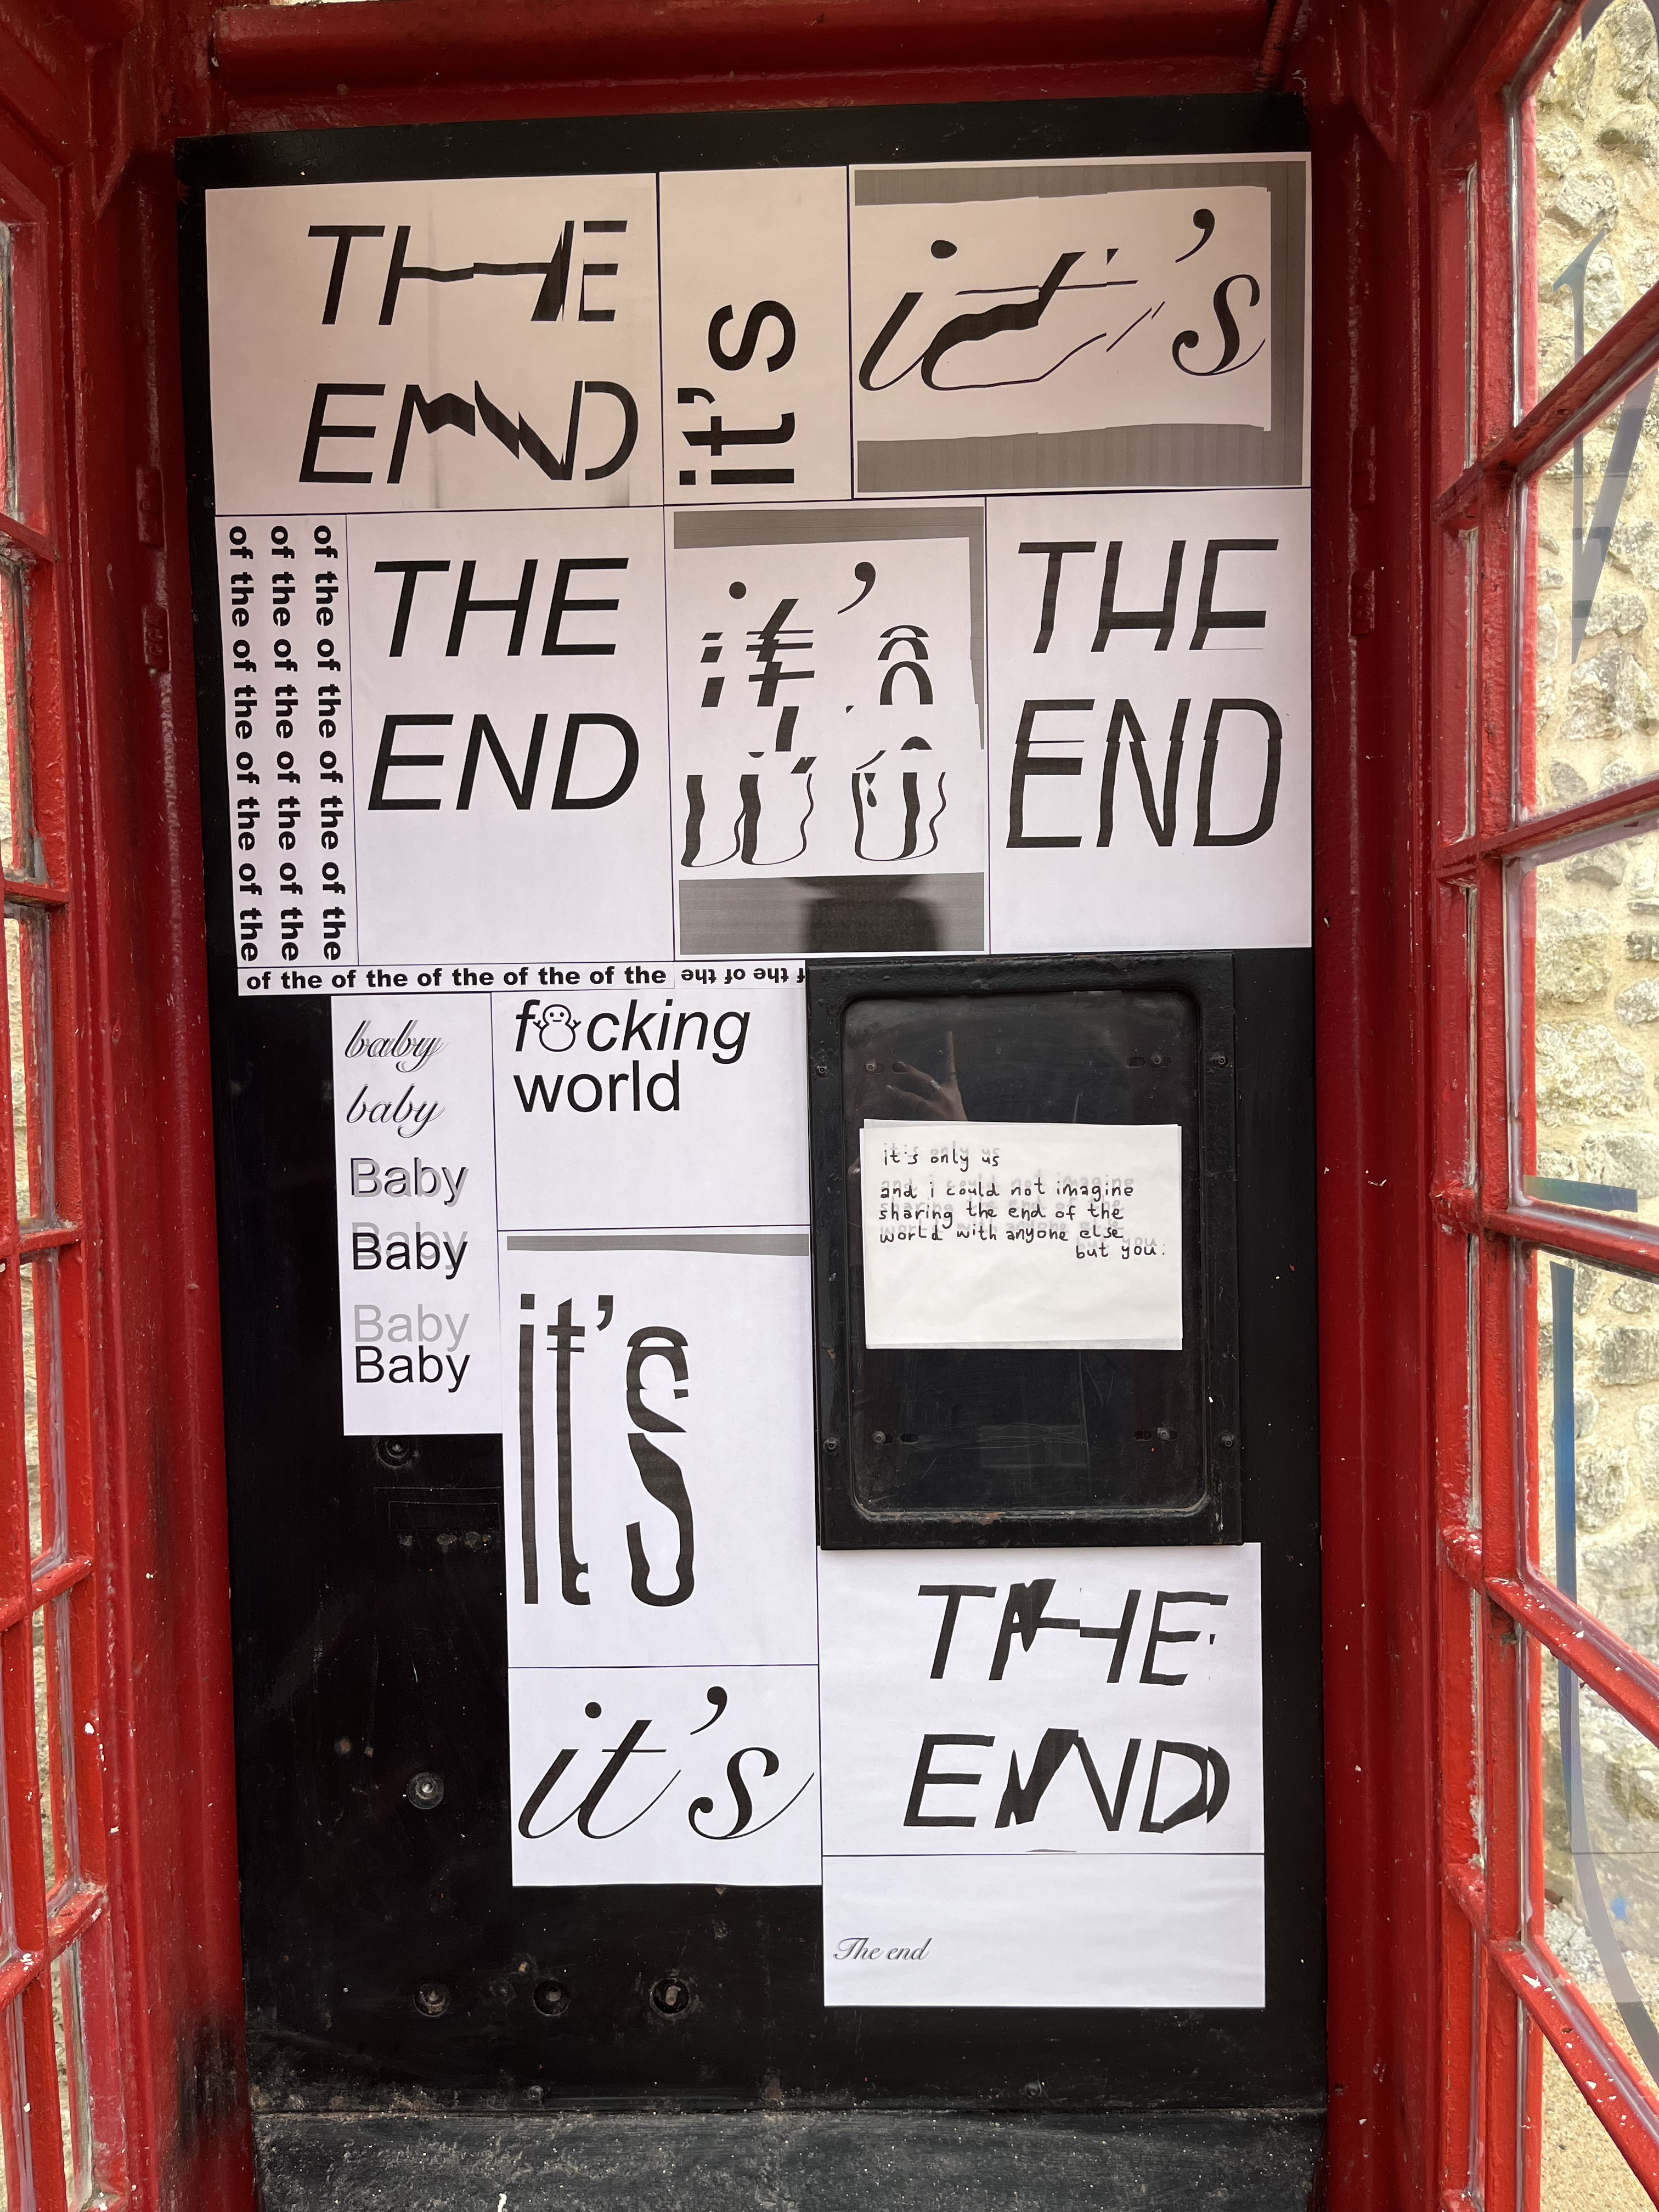 THE
END
it's
it's
of the of the of the of the of the
of the of the of the of the of the
of the of the of the of the of the
THE
END
it's
THE
END
of the of the of the of the of the
of the of the
baby
baby
Baby
Baby
Baby
Baby
f☃cking
world
it's only us
and i could not imagine
sharing the end of the
world with anyone else
but you.
it's
it's
THE
END
The end